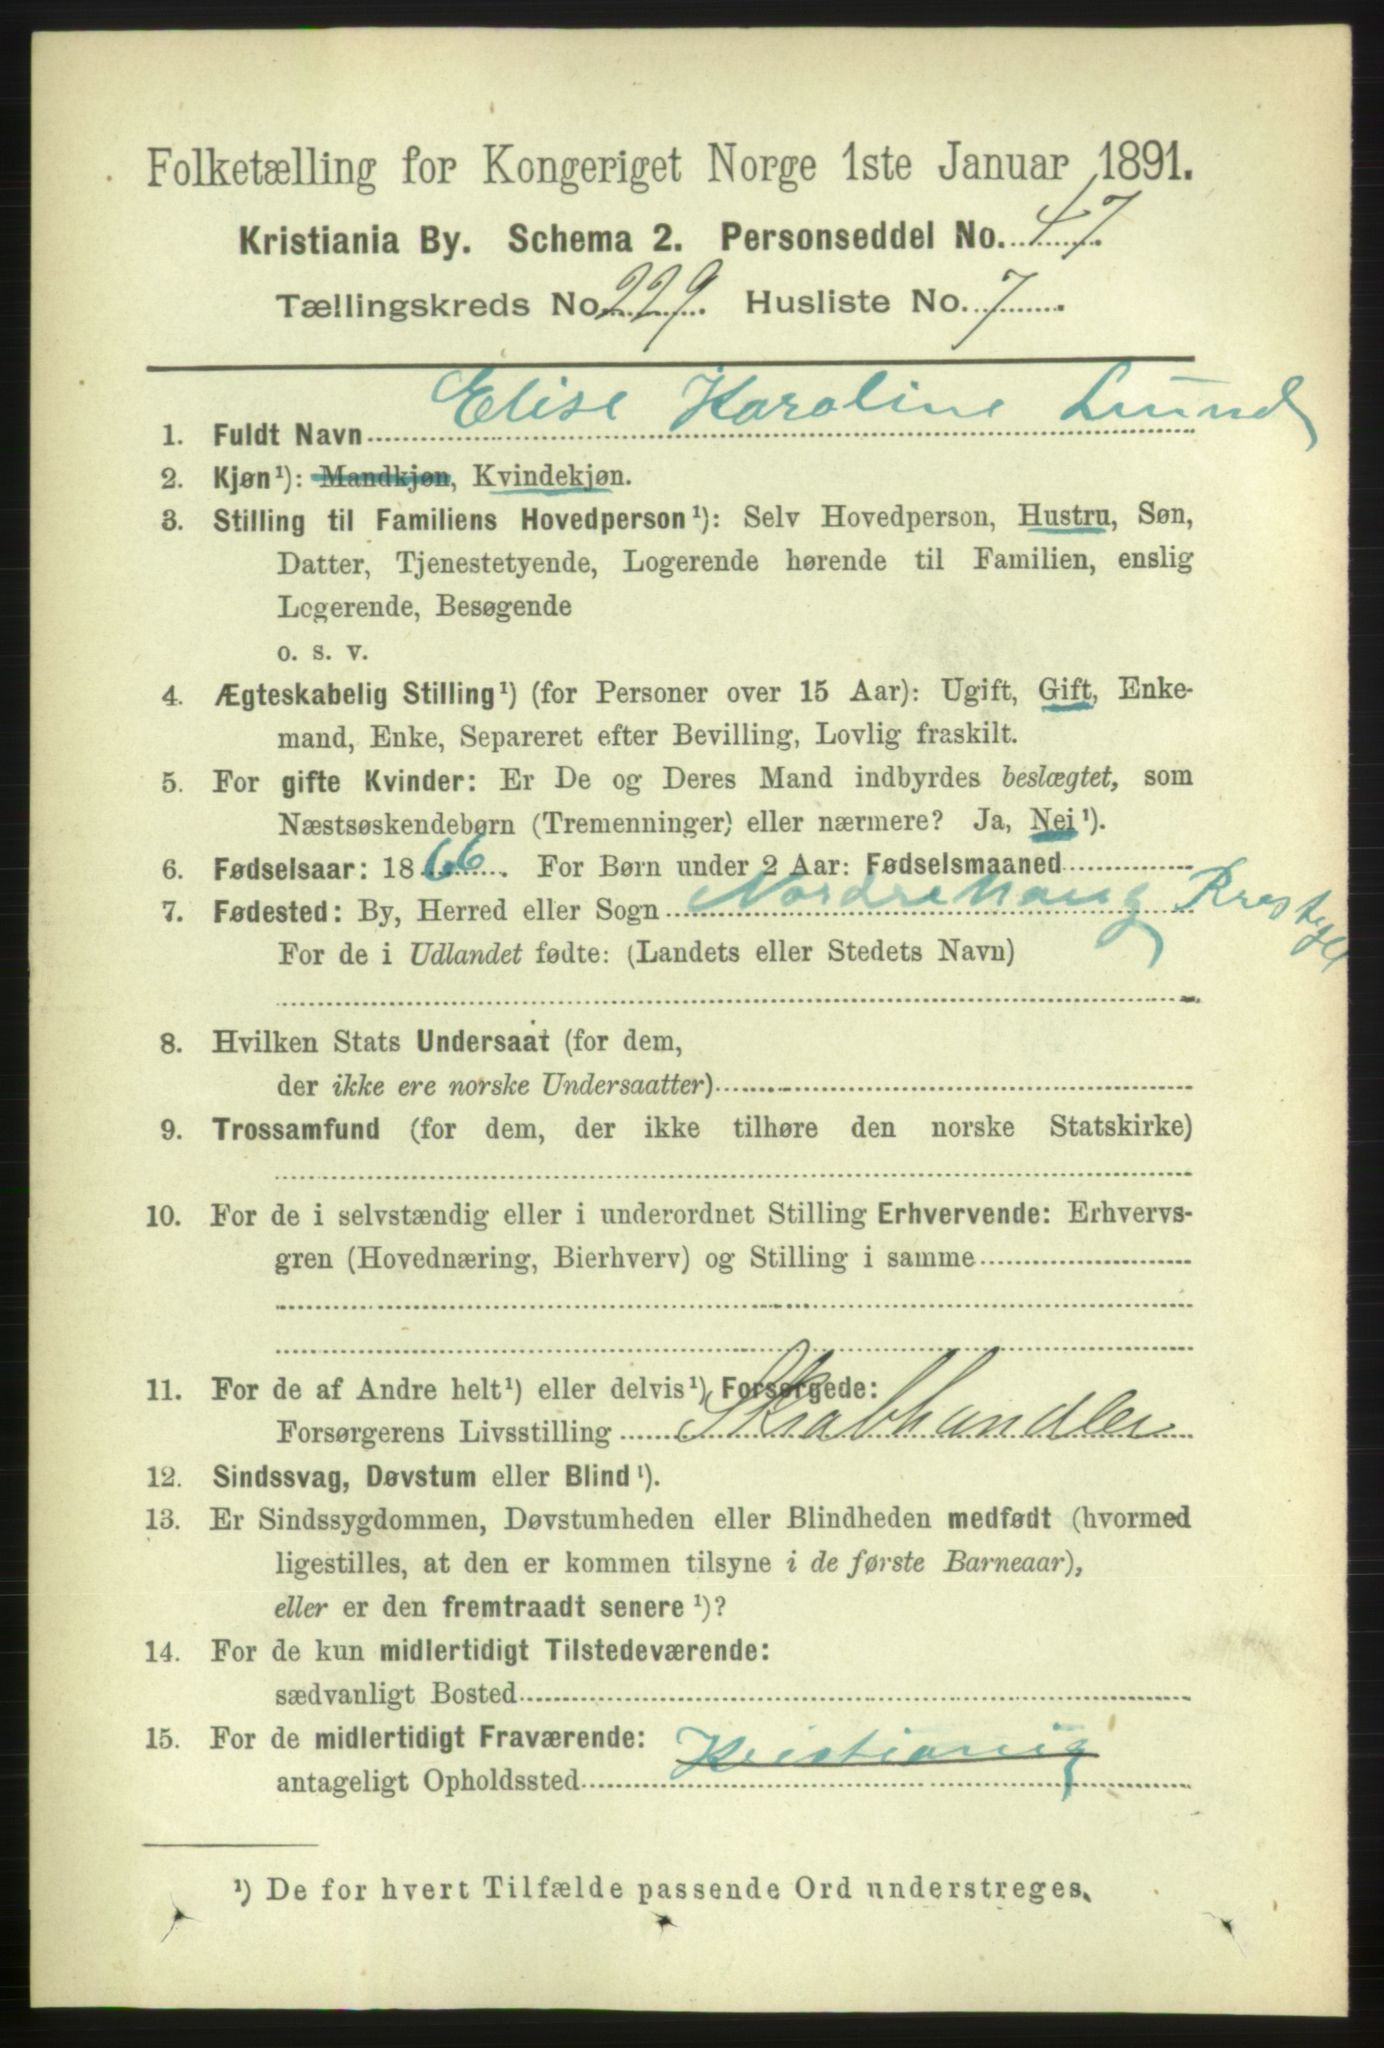 Folketælling for Kongeriget Norge 1ste Januar 1891.
Kristiania By. Schema 2. Personseddel No. 47
Tællingskreds No. 229. Husliste No. 7
1. Fuldt Navn Elise Karoline Lund
2. Kjøn¹): Mandkjøn, Kvindekjøn.
3. Stilling til Familiens Hovedperson¹): Selv Hovedperson, Hustru, Søn,
Datter, Tjenestetyende, Logerende hørende til Familien, enslig
Logerende, Besøgende
o. s. v.
4. Ægteskabelig Stilling¹) (for Personer over 15 Aar): Ugift, Gift, Enke-
mand, Enke, Separeret efter Bevilling, Lovlig fraskilt.
5. For gifte Kvinder: Er De og Deres Mand indbyrdes beslægtet, som
Næstsøskendebørn (Tremenninger) eller nærmere? Ja, Nei¹).
6. Fødselsaar: 1866. For Børn under 2 Aar: Fødselsmaaned
7. Fødested: By, Herred eller Sogn Nordrehaug
For de i Udlandet fødte: (Landets eller Stedets Navn)
8. Hvilken Stats Undersaat (for dem,
der ikke ere norske Undersaatter)
9. Trossamfund (for dem, der ikke tilhøre den norske Statskirke)
10. For de i selvstændig eller i underordnet Stilling Erhvervende: Erhvervs-
gren (Hovednæring, Bierhverv) og Stilling i samme
11. For de af Andre helt¹) eller delvis¹) Forsørgede:
Forsørgerens Livsstilling Skrabhandler
12. Sindssvag, Døvstum eller Blind¹).
13. Er Sindssygdommen, Døvstumheden eller Blindheden medfødt (hvormed
ligestilles, at den er kommen tilsyne i de første Barneaar),
eller er den fremtraadt senere¹)?
14. For de kun midlertidigt Tilstedeværende:
sædvanligt Bosted
15. For de midlertidigt Fraværende:
antageligt Opholdssted Kristiania
¹) De for hvert Tilfælde passende Ord understreges.